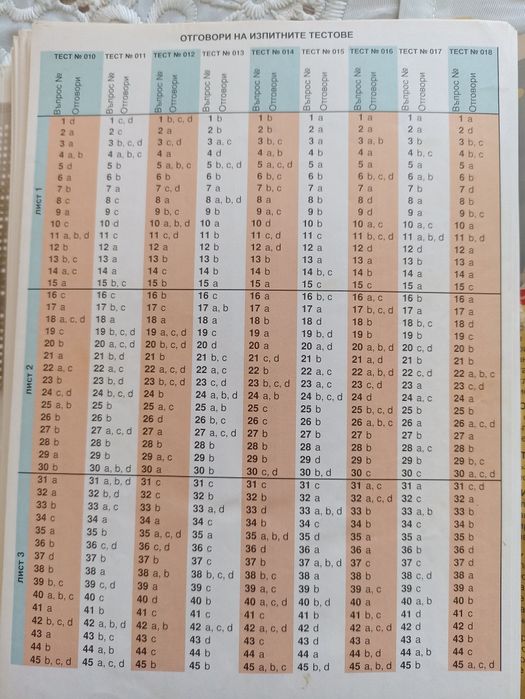 ОТГОВОРИ НА ИЗПИТНИТЕ ТЕСТОВЕ
ТЕСТ № 010 ТЕСТ № 011 ТЕСТ № 012 ТЕСТ № 013 ТЕСТ № 014 ТЕСТ № 015 ТЕСТ № 016 ТЕСТ № 017 ТЕСТ № 018
Въпрос № Отговори Въпрос № Отговори Въпрос № Отговори Въпрос № Отговори Въпрос № Отговори Въпрос № Отговори Въпрос № Отговори Въпрос № Отговори Въпрос № Отговори
ЛИСТ 1
1 d 1 c, d 1 b, c, d 1 b 1 b 1 a 1 a 1 a 1 a
2 a 2 c 2 a 2 b 2 b 2 a 2 a 2 a 2 d
3 a 3 b, c, d 3 c, d 3 a, c 3 b, c 3 a 3 a, b 3 b 3 b, c
4 a, b 4 a, b, c 4 a 4 d 4 a, b 4 a 4 a 4 b, c 4 b, c
5 d 5 b 5 a, b, c 5 b, c, d 5 a, c, d 5 a 5 a 5 a 5 a
6 a 6 b 6 b 6 b 6 b, c 6 b 6 b, c, d 6 a, b 6 b
7 b 7 a 7 c, d 7 a 7 b, c 7 a 7 a 7 b 7 d
8 c 8 c 8 a 8 a, b, d 8 a 8 b 8 d 8 a 8 a
9 a 9 c 9 b, c 9 b 9 a, c 9 b 9 d 9 a 9 b, c
10 c 10 d 10 a, b, d 10 a 10 d 10 b 10 a, c 10 a, c 10 a
11 a, b, d 11 c 11 c, d 11 b 11 c, d 11 c 11 b, c, d 11 a, b, d 11 b, d
12 b 12 a 12 a 12 b 12 a, d 12 a 12 d 12 a 12 a
13 b, c 13 a 13 b 13 b 13 b 13 a 13 a 13 b 13 a
14 a, c 14 a 14 c 14 b 14 b 14 b, c 14 a 14 a 14 a
15 a 15 b, c 15 a 15 b 15 b 15 a 15 c 15 c 15 c
ЛИСТ 2
16 c 16 c 16 b 16 c 16 a 16 b 16 a, c 16 b 16 a
17 a 17 b, c 17 c 17 a, b 17 a 17 a 17 b, c, d 17 a 17 a
18 a, c, d 18 a 18 a 18 a 18 b 18 d 18 b 18 b, c 18 b
19 c 19 b, c, d 19 a, c, d 19 c 19 a 19 b, d 19 b 19 c 19 d
20 b 20 a, c, d 20 b, c, d 20 d 20 a 20 a, b 20 a, b, d 20 d 20 b
21 a 21 b, d 21 b 21 b, c 21 c, d 21 b 21 a, d 21 b 21 b
22 a, c 22 a, c 22 a, c, d 22 a, c 22 b 22 a, c 22 a, b, d 22 a 22 a, b, c
23 b 23 b, d 23 b, c, d 23 c, d 23 b, c, d 23 a, c 23 c, d 23 a 23 c, d
24 c, d 24 b, c, d 24 b 24 a, b, d 24 a, b 24 b, c 24 d 24 c, d 24 a
25 a, b 25 b 25 a, c 25 a, b 25 c 25 b 25 b, c, d 25 b 25 c
26 b 26 b 26 d 26 a 26 b 26 a 26 b, d 26 c 26 a, c, d
27 b 27 a, c, d 27 b 27 a, c, d 27 b 27 a 27 b 27 b 27 a
28 b 28 b 28 b 28 b 28 b 28 b 28 b 28 a, c 28 b
29 a 29 b 29 a, c 29 c 29 b 29 d 29 b 29 b 29 b, c
30 b 30 a, b, d 30 a 30 b 30 c, d 30 b, d 30 c 30 c 30 a, c, d
ЛИСТ 3
31 a 31 a, b, d 31 c 31 c 31 c 31 c 31 a, c 31 c 31 c, d
32 a 32 b, d 32 c 32 b 32 b 32 a 32 a, c, d 32 c 32 a
33 b 33 c 33 b 33 a, d 33 d 33 a, b, d 33 b 33 a, b 33 b
34 c 34 a 34 a 34 c 34 b 34 c 34 b 34 c 34 a
35 a 35 b 35 a, c, d 35 a 35 a, b, d 35 b 35 a 35 b 35 b
36 b 36 c, d 36 c, d 36 b 36 d 36 a 36 a 36 b 36 d
37 d 37 b 37 b 37 c 37 d 37 a, b, d 37 c 37 d 37 d
38 b 38 a 38 a, b 38 b, c, d 38 b, c 38 c 38 b 38 c, d 38 a
39 b, c 39 c, d 39 d 39 c 39 b, c 39 c 39 a, c 39 c 39 a
40 a, b, c 40 c 40 d 40 b 40 a, c, d 40 d 40 a 40 a, b 40 b
41 a 41 b 41 c 41 b 41 c 41 c 41 c 41 d 41 c
42 b, c, d 42 a, b, d 42 b 42 a, c, d 42 a, c, d 42 d 42 a, c 42 d 42 c
43 a 43 b, c 43 c 43 d 43 c 43 d 43 a 43 b 43 b
44 b 44 a, b 44 c 44 c 44 b 44 a 44 b, d 44 a 44 b
45 b, c, d 45 a, c, d 45 b 45 b 45 a, b, c 45 b, d 45 a, b, d 45 b 45 a, c, d